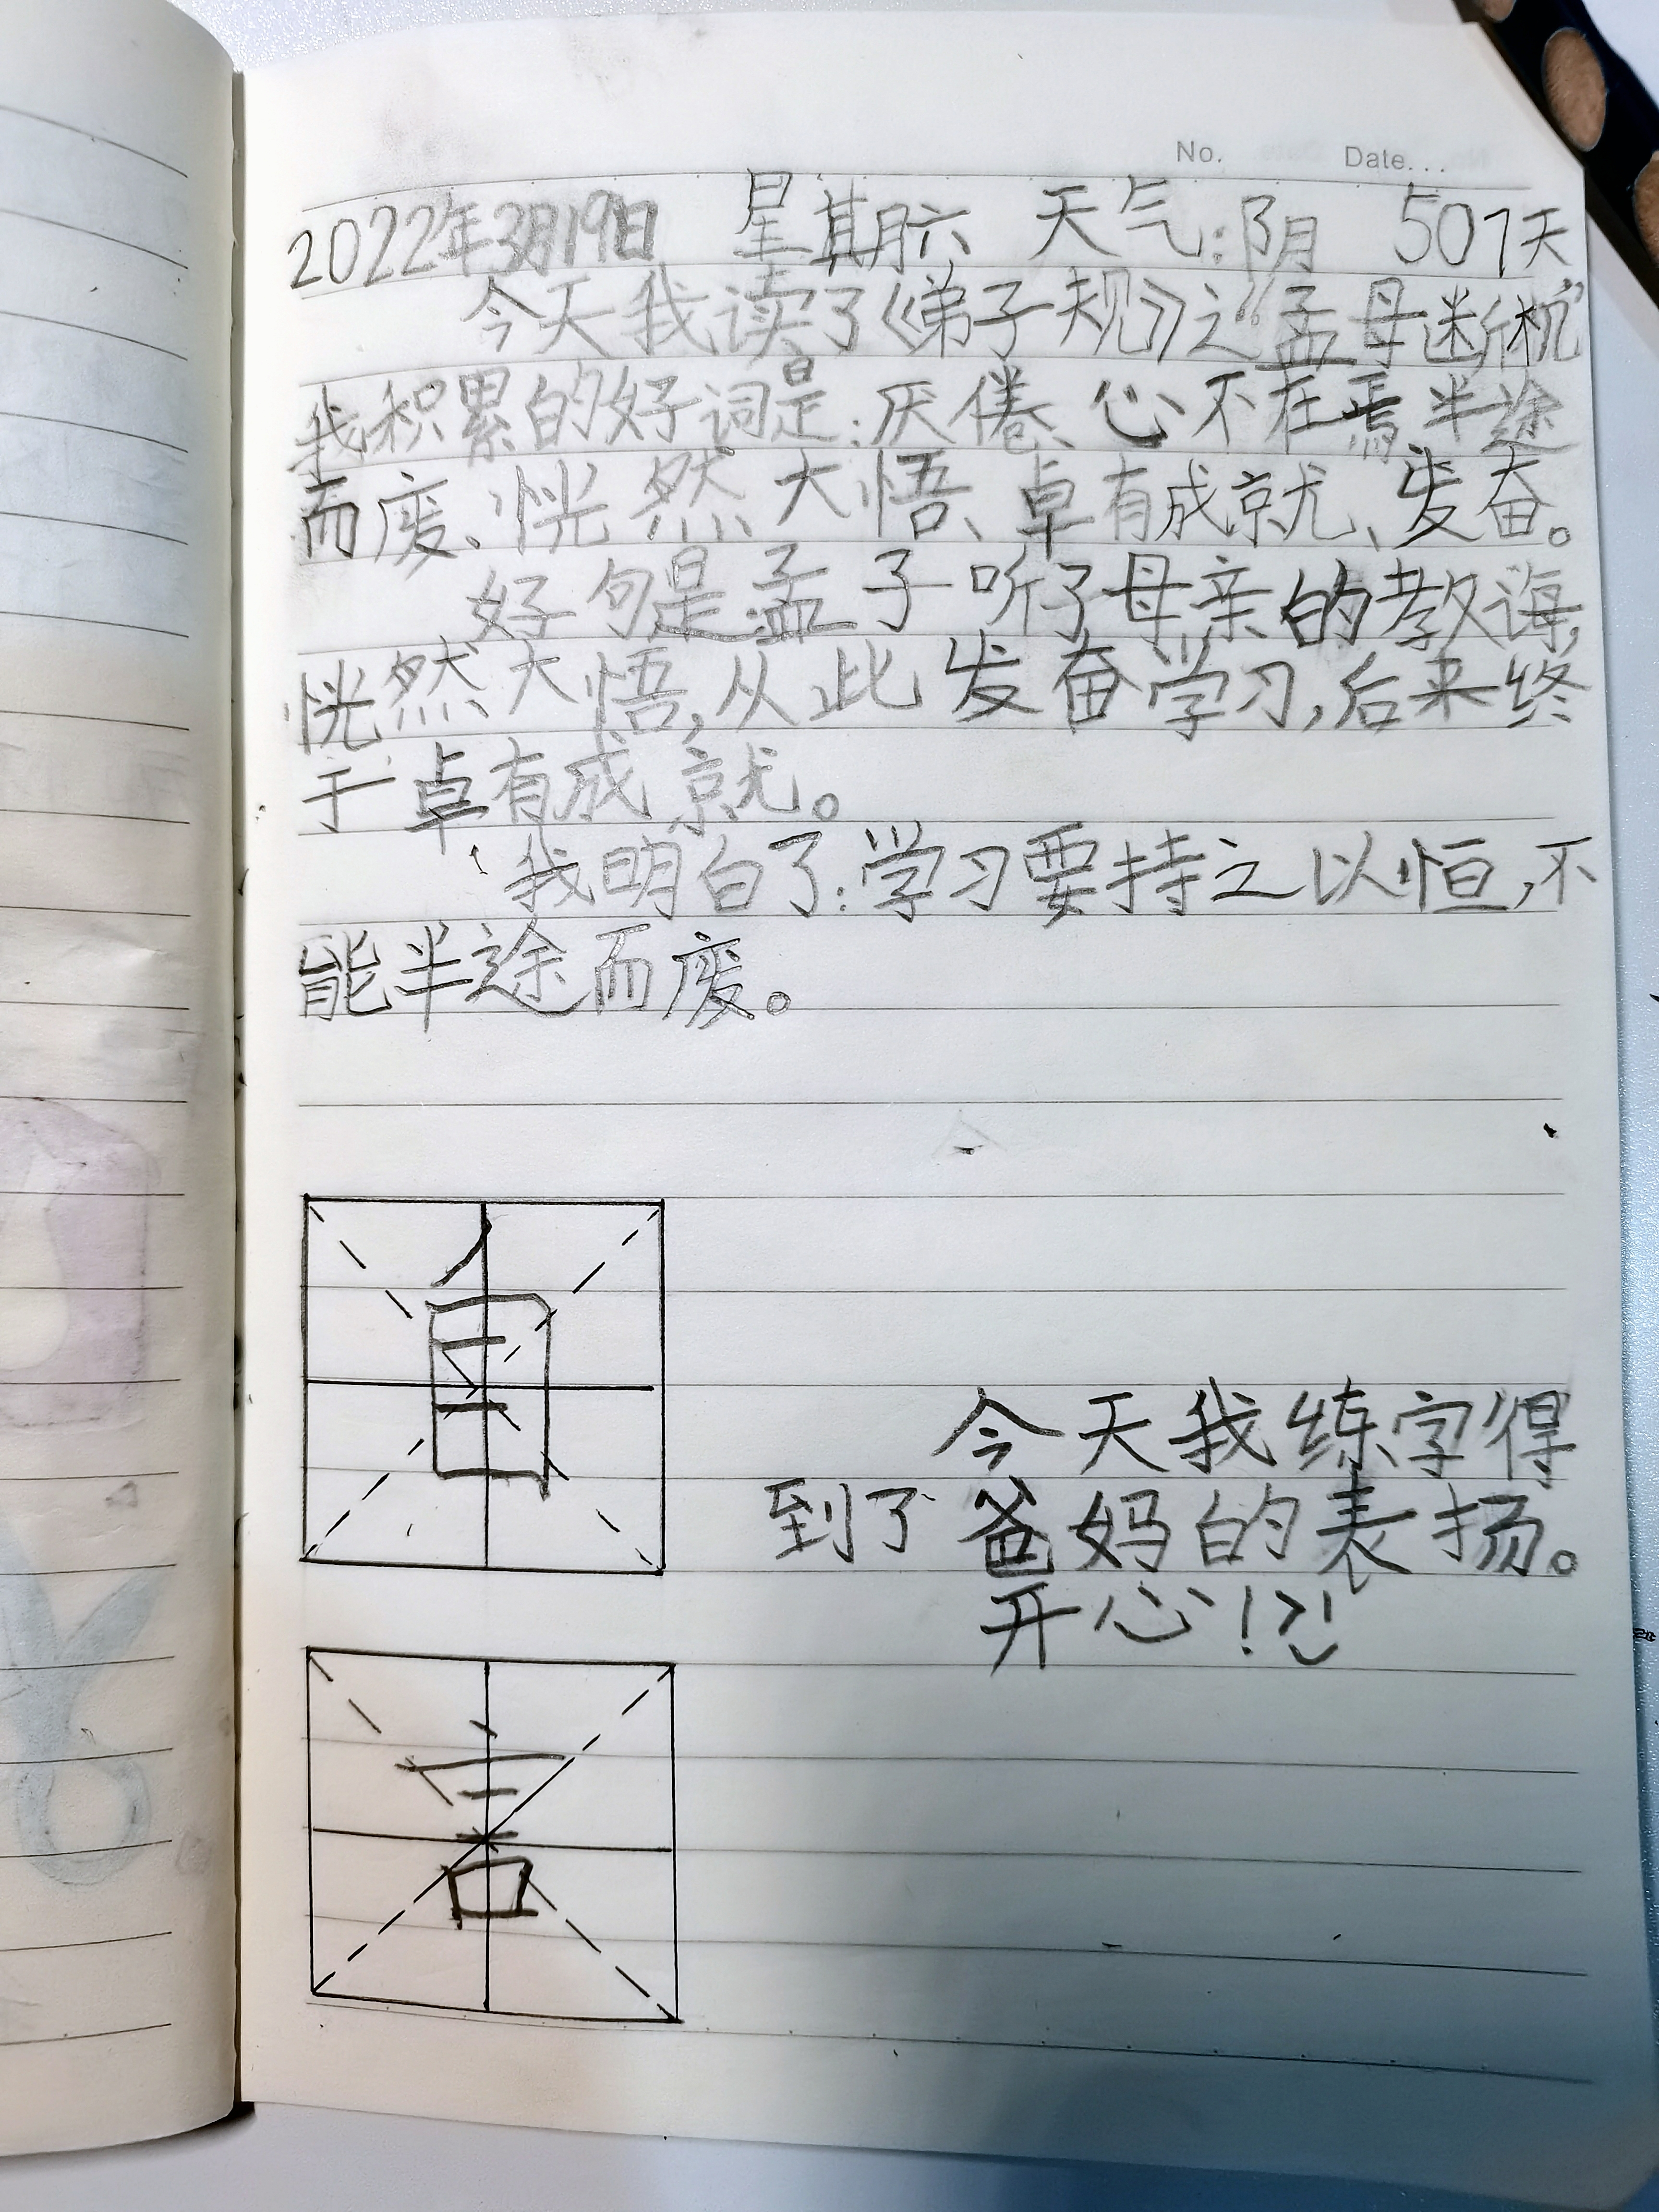 No. Date...
2022年3月19日 星期六 天气:阴 507天
今天我读了《弟子规》之“孟母断机”
我积累的好词是:厌倦、心不在焉、半途
而废、恍然大悟、卓有成就、发奋。
好句是孟子听了母亲的教诲,
恍然大悟,从此发奋学习,后来终
于卓有成就。
我明白了:学习要持之以恒,不
能半途而废。
自
今天我练字得
到了爸妈的表扬。
开心!
言